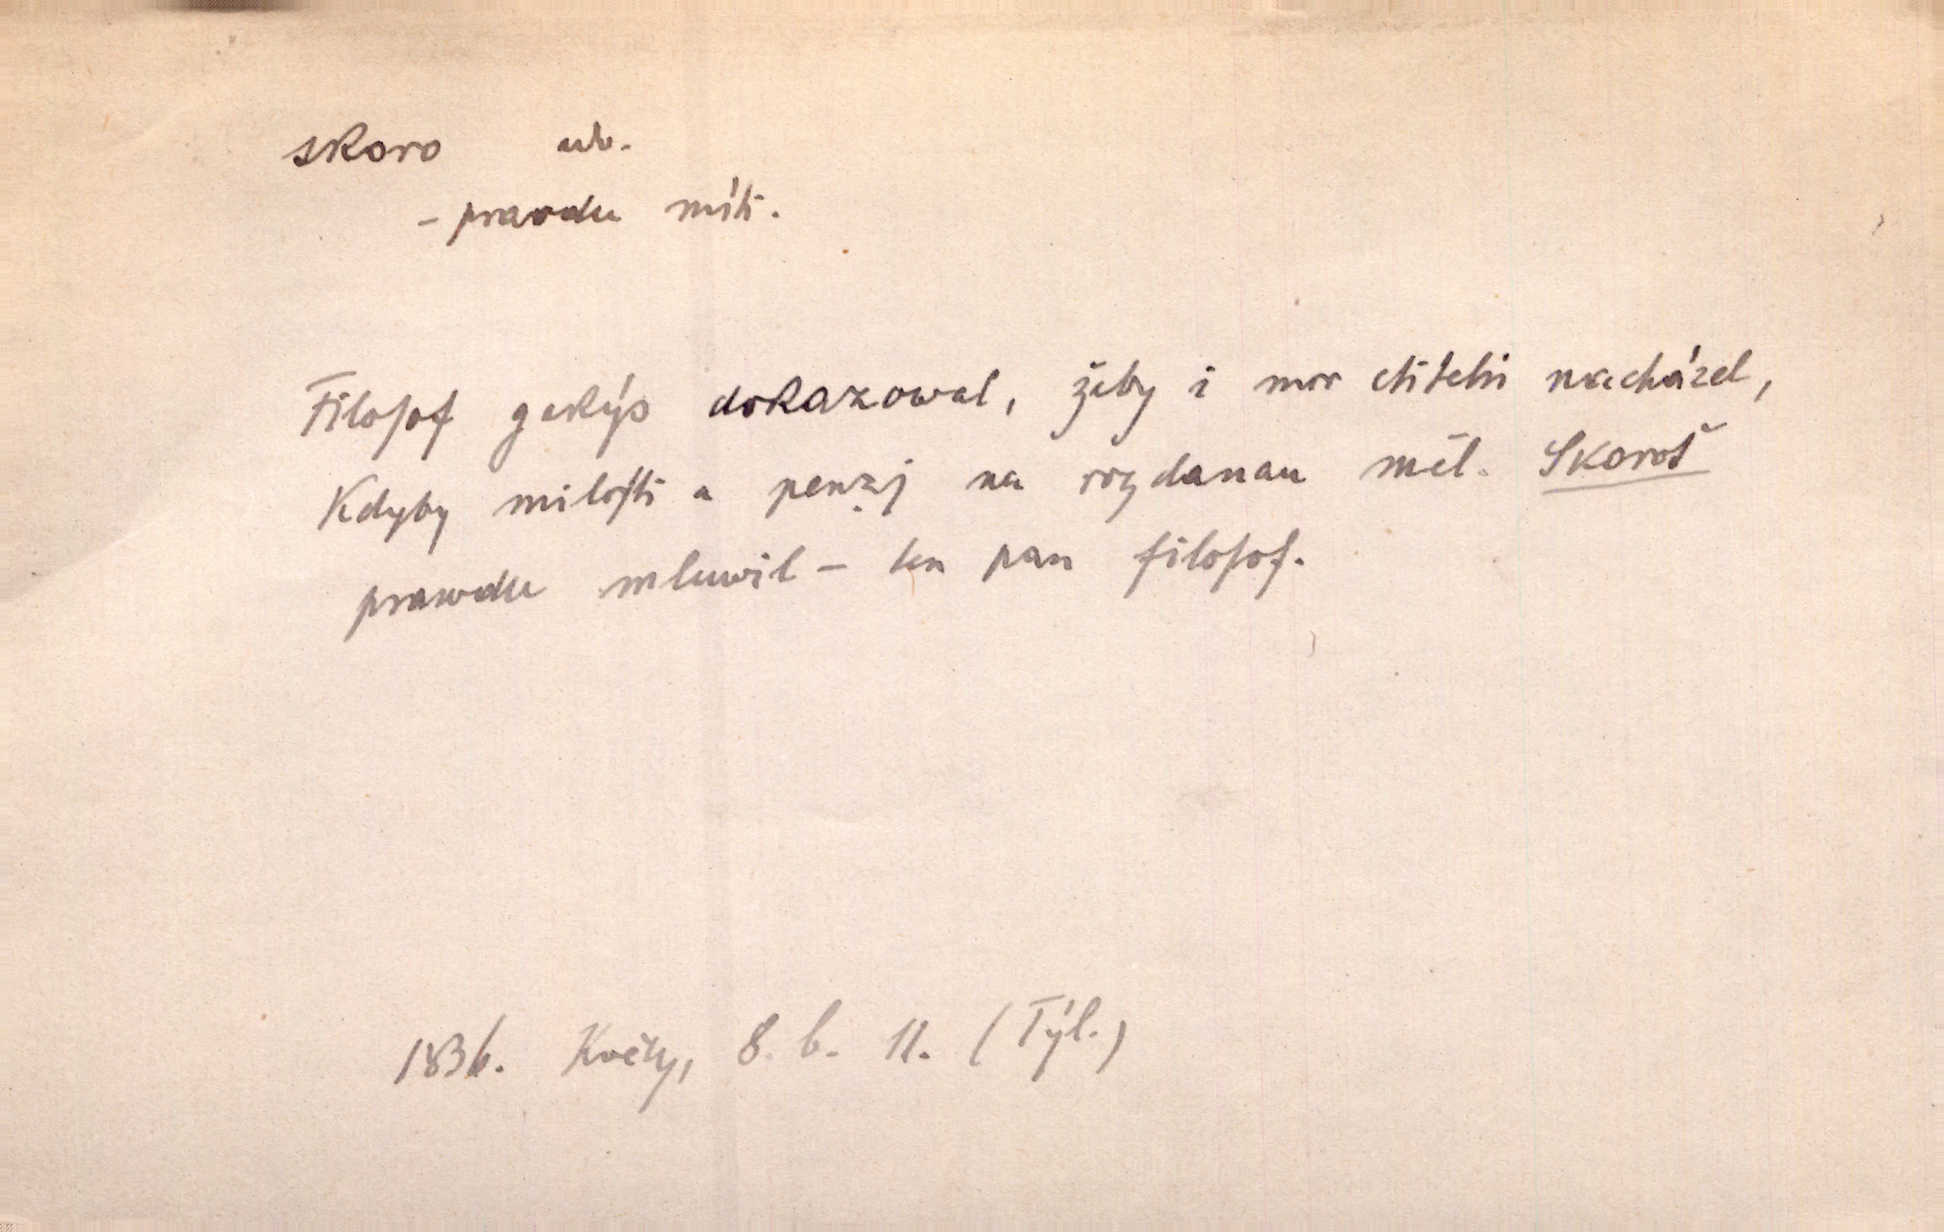 skoro adv.
- pravdu míti.
Filosof gakýs dokazowal, žeby i mor ctitele nacházel,
Kdyby milosti a penzj na rozdanau měl. Skoroš
prawdu mluwil - ten pan filosof.
1836. Květy, 8. 6. 11. (Týl.)